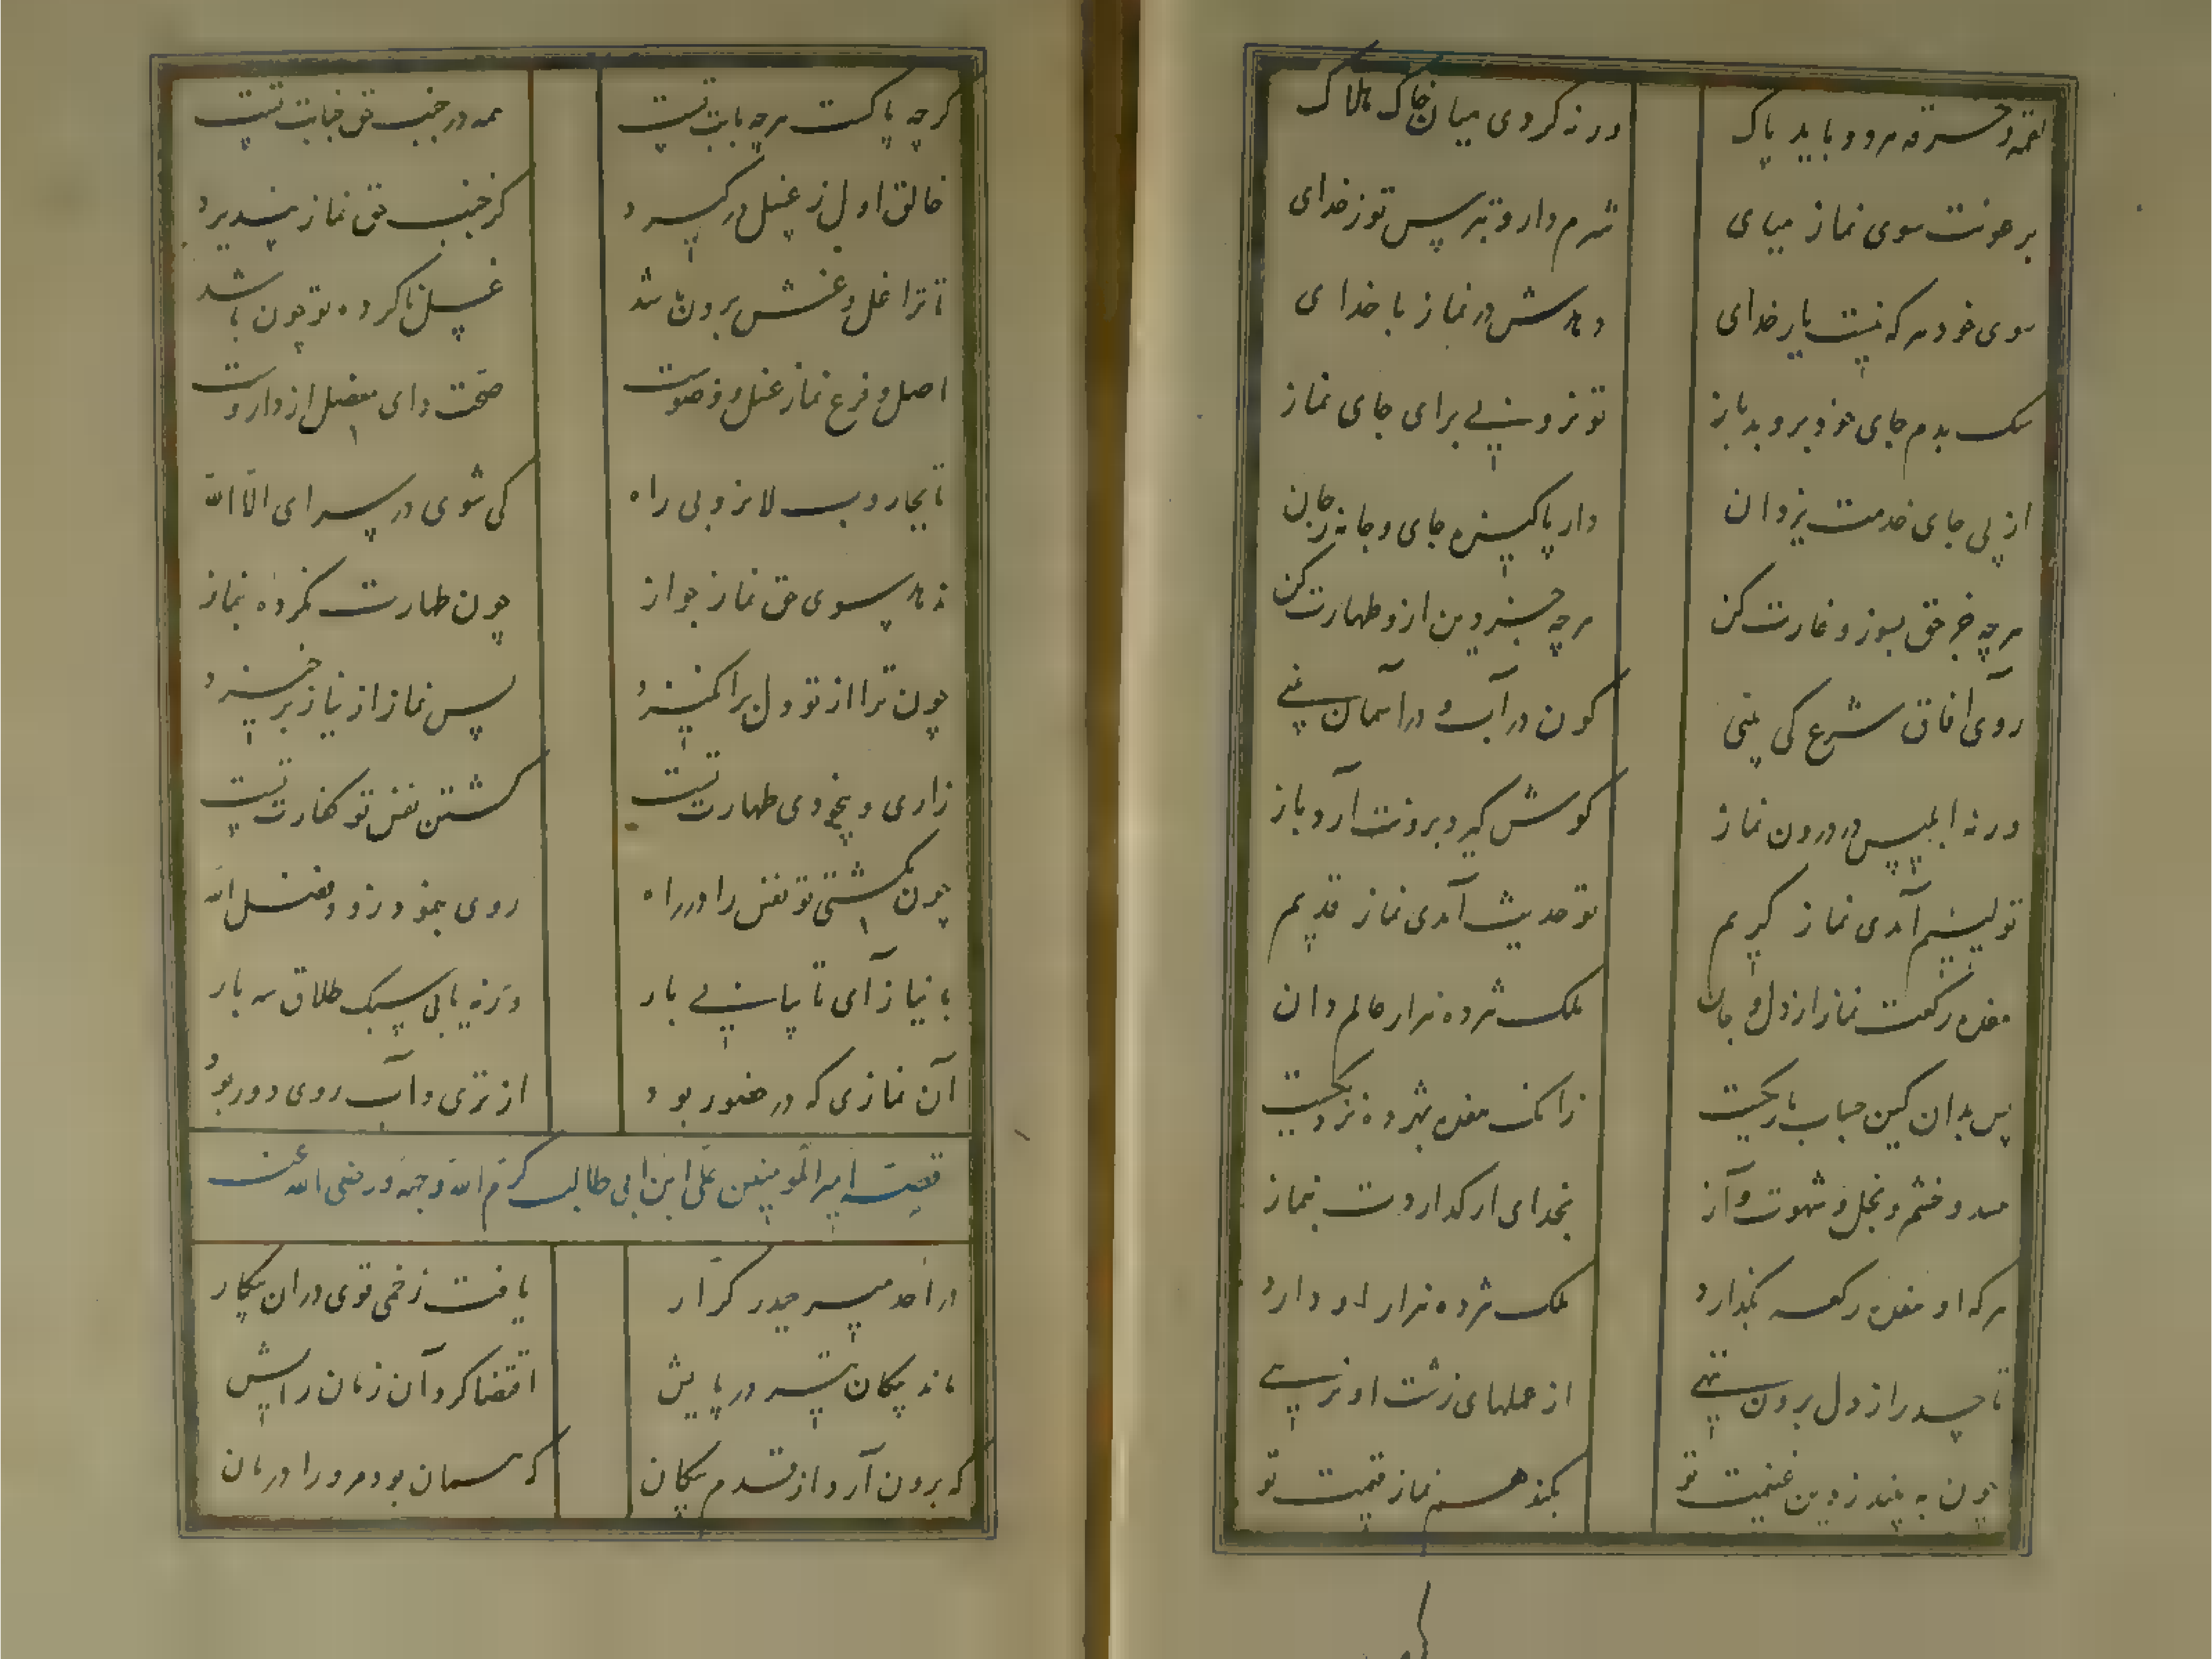 لقمه و خرقه هر دو باید پاک
ورنه کردی میان خاک هلاک
برعونت سوی نماز میای
شرم دار و بترس تو ز خدای
سوی خود هر که نیست بار خدای
دهدش در نماز با خدای
سک بدم جای خود بروبد باز
تو نروبی برای جای نماز
از پی جای خدمت یزدان
دار پاکیزه جای و جامه و جان
هرچه جز حق بسوز و غارت کن
هرچه جز دین ازو طهارت کن
روی آفاق شرع کی بینی
کون در آب و در آسمان بینی
ورنه ابلیس در درون نماز
کوش کیرد برونت آرد باز
تو لئیم آمدی نماز کریم
تو حدیث آمدی نماز قدیم
هفده رکعت نماز از دل و جان
ملک هژده هزار عالم دان
پس بدان کین حساب باریکست
زانک هفده بهژده نزدیکست
حسد و خشم و بخل و شهوت و آز
بخدای ار کذاردت بنماز
هرکه او هفده رکعه بکذارد
ملک هژده هزار او دارد
تا حسد را ز دل برون ننهی
از عملهای زشت او نرهی
چون نه بیند ز دین غنیمت تو
بکند هم نماز قیمت تو
کرچه پاکست هرچه بابت تست
همه در جنب حق جنابت تست
خالق اول ز غسل درکیرد
کز جنب حق نماز نپذیرد
تا ترا غل و غش برون باشد
غسل ناکرده تو چون باشد
اصل و فرع نماز غسل و وضوست
صحت دای معضل از داروست
تا بجاروب لا نروبی راه
کی شوی در سرای الا الله
ندهد سوی حق نماز جواز
چون طهارت نکرده نماز
چون ترا از تو دل برانکیزد
پس نماز از نیاز برخیزد
زاری و بیخودی طهارت تست
کشتن نفس تو کفارت تست
چون بکشتی تو نفس را در راه
روی بنمود زود فضل اله
با نیاز آی تا بیابی بار
ورنه یابی سبک طلاق سه بار
آن نمازی که در حضور بود
از تری و آب روی دور بود
قصه امیر المؤمنین علی ابن ابی طالب کرم الله وجهه و رضی الله عنه
در احد میر حیدر کرار
یافت زخمی قوی در آن پیکار
ماند پیکان تیر در پایش
اقتضا کرد آن زمان رایش
که برون آرد از قدم پیکان
که همان بود مرورا درمان